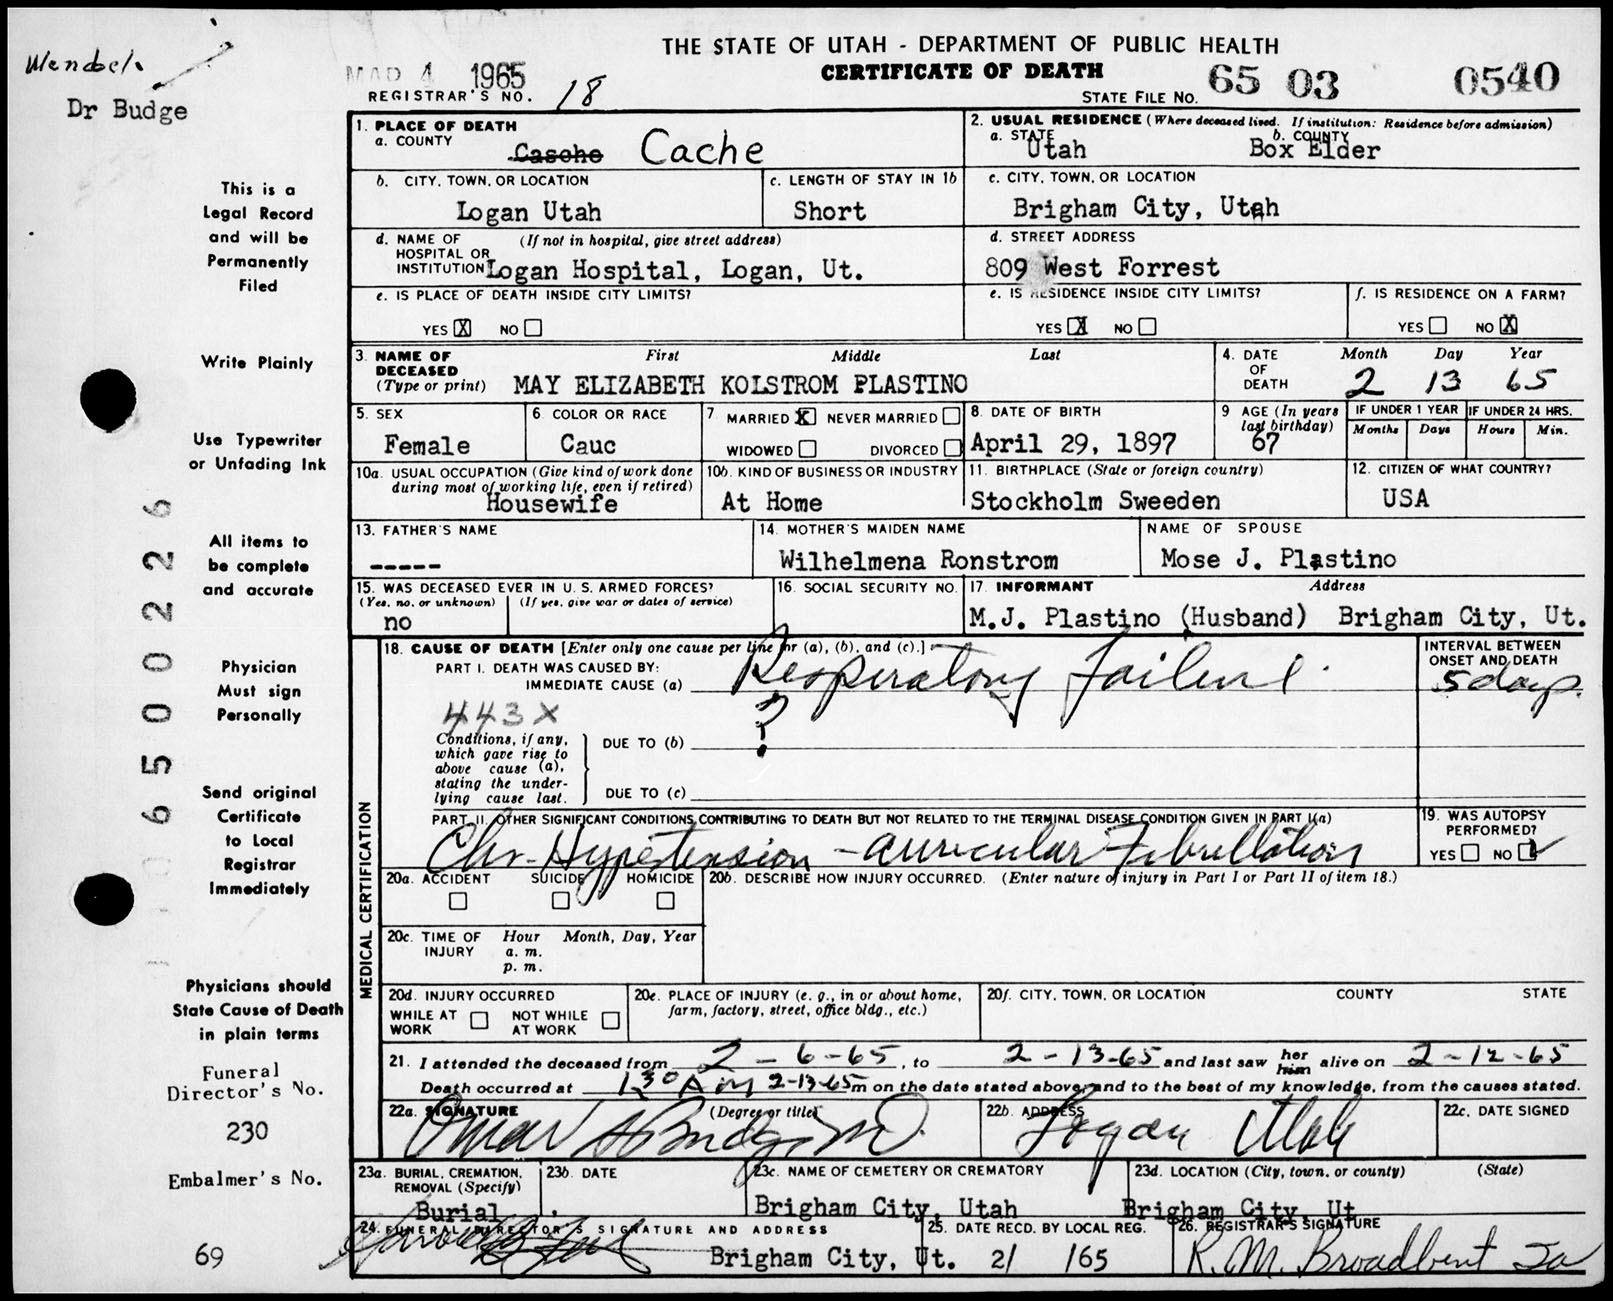 THE STATE OF UTAH - DEPARTMENT OF PUBLIC HEALTH
CERTIFICATE OF DEATH
Dr Budge
MAR 4 1965
REGISTRAR'S NO. 18
STATE FILE NO. 65 03 0540
This is a
Legal Record
and will be
Permanently
Filed
Write Plainly
Use Typewriter
or Unfading Ink
All items to
be complete
and accurate
Physician
Must sign
Personally
Send original
Certificate
to Local
Registrar
Immediately
Physicians should
State Cause of Death
in plain terms
Funeral
Director's No.
230
Embalmer's No.
69
6500226
1. PLACE OF DEATH
a. COUNTY
Casche Cache
2. USUAL RESIDENCE (Where deceased lived. If institution: Residence before admission)
a. STATE b. COUNTY
Utah Box Elder
b. CITY, TOWN, OR LOCATION
Logan Utah
c. LENGTH OF STAY IN 1b
Short
c. CITY, TOWN, OR LOCATION
Brigham City, Utah
d. NAME OF (If not in hospital, give street address)
HOSPITAL OR
INSTITUTION Logan Hospital, Logan, Ut.
d. STREET ADDRESS
809 West Forrest
e. IS PLACE OF DEATH INSIDE CITY LIMITS?
YES X NO
e. IS RESIDENCE INSIDE CITY LIMITS?
YES X NO
f. IS RESIDENCE ON A FARM?
YES NO X
3. NAME OF First Middle Last
DECEASED
(Type or print) MAY ELIZABETH KOLSTROM PLASTINO
4. DATE Month Day Year
OF
DEATH 2 13 65
5. SEX
Female
6. COLOR OR RACE
Cauc
7. MARRIED X NEVER MARRIED
WIDOWED DIVORCED
8. DATE OF BIRTH
April 29, 1897
9 AGE (In years
last birthday)
67
IF UNDER 1 YEAR IF UNDER 24 HRS.
Months Days Hours Min.
10a. USUAL OCCUPATION (Give kind of work done
during most of working life, even if retired)
Housewife
10b. KIND OF BUSINESS OR INDUSTRY
At Home
11. BIRTHPLACE (State or foreign country)
Stockholm Sweeden
12. CITIZEN OF WHAT COUNTRY?
USA
13. FATHER'S NAME
-----
14. MOTHER'S MAIDEN NAME
Wilhelmena Ronstrom
NAME OF SPOUSE
Mose J. Plastino
15. WAS DECEASED EVER IN U.S. ARMED FORCES?
(Yes, no, or unknown) (If yes, give war or dates of service)
no
16. SOCIAL SECURITY NO.
17. INFORMANT Address
M.J. Plastino (Husband) Brigham City, Ut.
MEDICAL CERTIFICATION
18. CAUSE OF DEATH [Enter only one cause per line for (a), (b), and (c).]
PART I. DEATH WAS CAUSED BY:
IMMEDIATE CAUSE (a) Respiratory Failure.
INTERVAL BETWEEN
ONSET AND DEATH
5 days.
443X
Conditions, if any,
which gave rise to
above cause (a),
stating the under-
lying cause last.
DUE TO (b) ?
DUE TO (c)
PART II. OTHER SIGNIFICANT CONDITIONS CONTRIBUTING TO DEATH BUT NOT RELATED TO THE TERMINAL DISEASE CONDITION GIVEN IN PART I(a)
Chr - Hypertension - auricular Fibrillation
19. WAS AUTOPSY
PERFORMED?
YES NO
20a. ACCIDENT SUICIDE HOMICIDE
20b. DESCRIBE HOW INJURY OCCURRED. (Enter nature of injury in Part I or Part II of item 18.)
20c. TIME OF Hour Month, Day, Year
INJURY a. m.
p. m.
20d. INJURY OCCURRED
WHILE AT WORK NOT WHILE AT WORK
20e. PLACE OF INJURY (e. g., in or about home,
farm, factory, street, office bldg., etc.)
20f. CITY, TOWN, OR LOCATION COUNTY STATE
21. I attended the deceased from 2 - 6 - 65, to 2 - 13-65 and last saw her him alive on 2 - 12 - 65
Death occurred at 1 30 AM 2-13-65 m on the date stated above, and to the best of my knowledge, from the causes stated.
22a. SIGNATURE (Degree or title)
Omar S Budge MD.
22b. ADDRESS
Logan Utah
22c. DATE SIGNED
23a. BURIAL, CREMATION,
REMOVAL (Specify)
Burial
23b. DATE
23c. NAME OF CEMETERY OR CREMATORY
Brigham City, Utah
23d. LOCATION (City, town, or county) (State)
Brigham City, Ut
24. FUNERAL DIRECTOR'S SIGNATURE AND ADDRESS
Brigham City, Ut.
25. DATE RECD. BY LOCAL REG.
2/ /65
26. REGISTRAR'S SIGNATURE
R.M. Broadbent